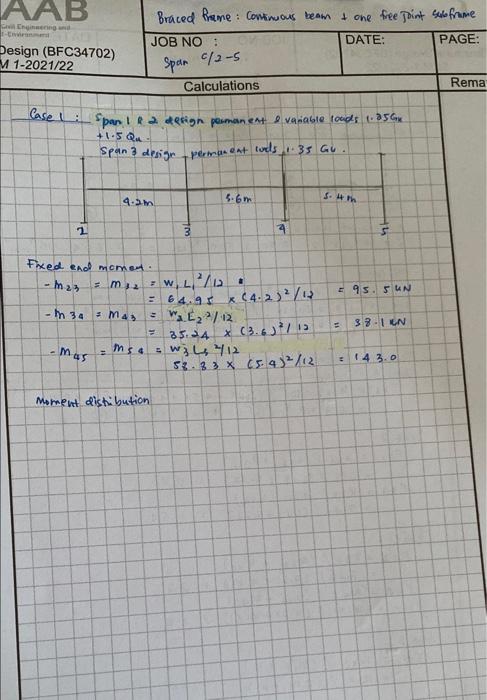 AAB
Civil Engineering and
Environment
Design (BFC34702)
M 1-2021/22
Braced frame : Continuous beam & one free joint subframe
JOB NO :
Span C/2-5
DATE:
PAGE:
Calculations
Rema
Case 1 : Span 1 & 2 design permanent & variable loads 1.35Gk
+1.5 Qk
Span 3 design permanent loads 1.35 Gk.
4.2m 3.6m 5.4m
2 3 4 5
Fixed end moment.
-M23 = M32 = W1 L1²/12
= 64.95 × (4.2)²/12 = 95.5 kN
-M34 = M43 = W2 L2²/12
= 35.24 × (3.6)²/12 = 38.1 kN
-M45 = M54 = W3 L3²/12
58.83 × (5.4)²/12 = 143.0
Moment distibution